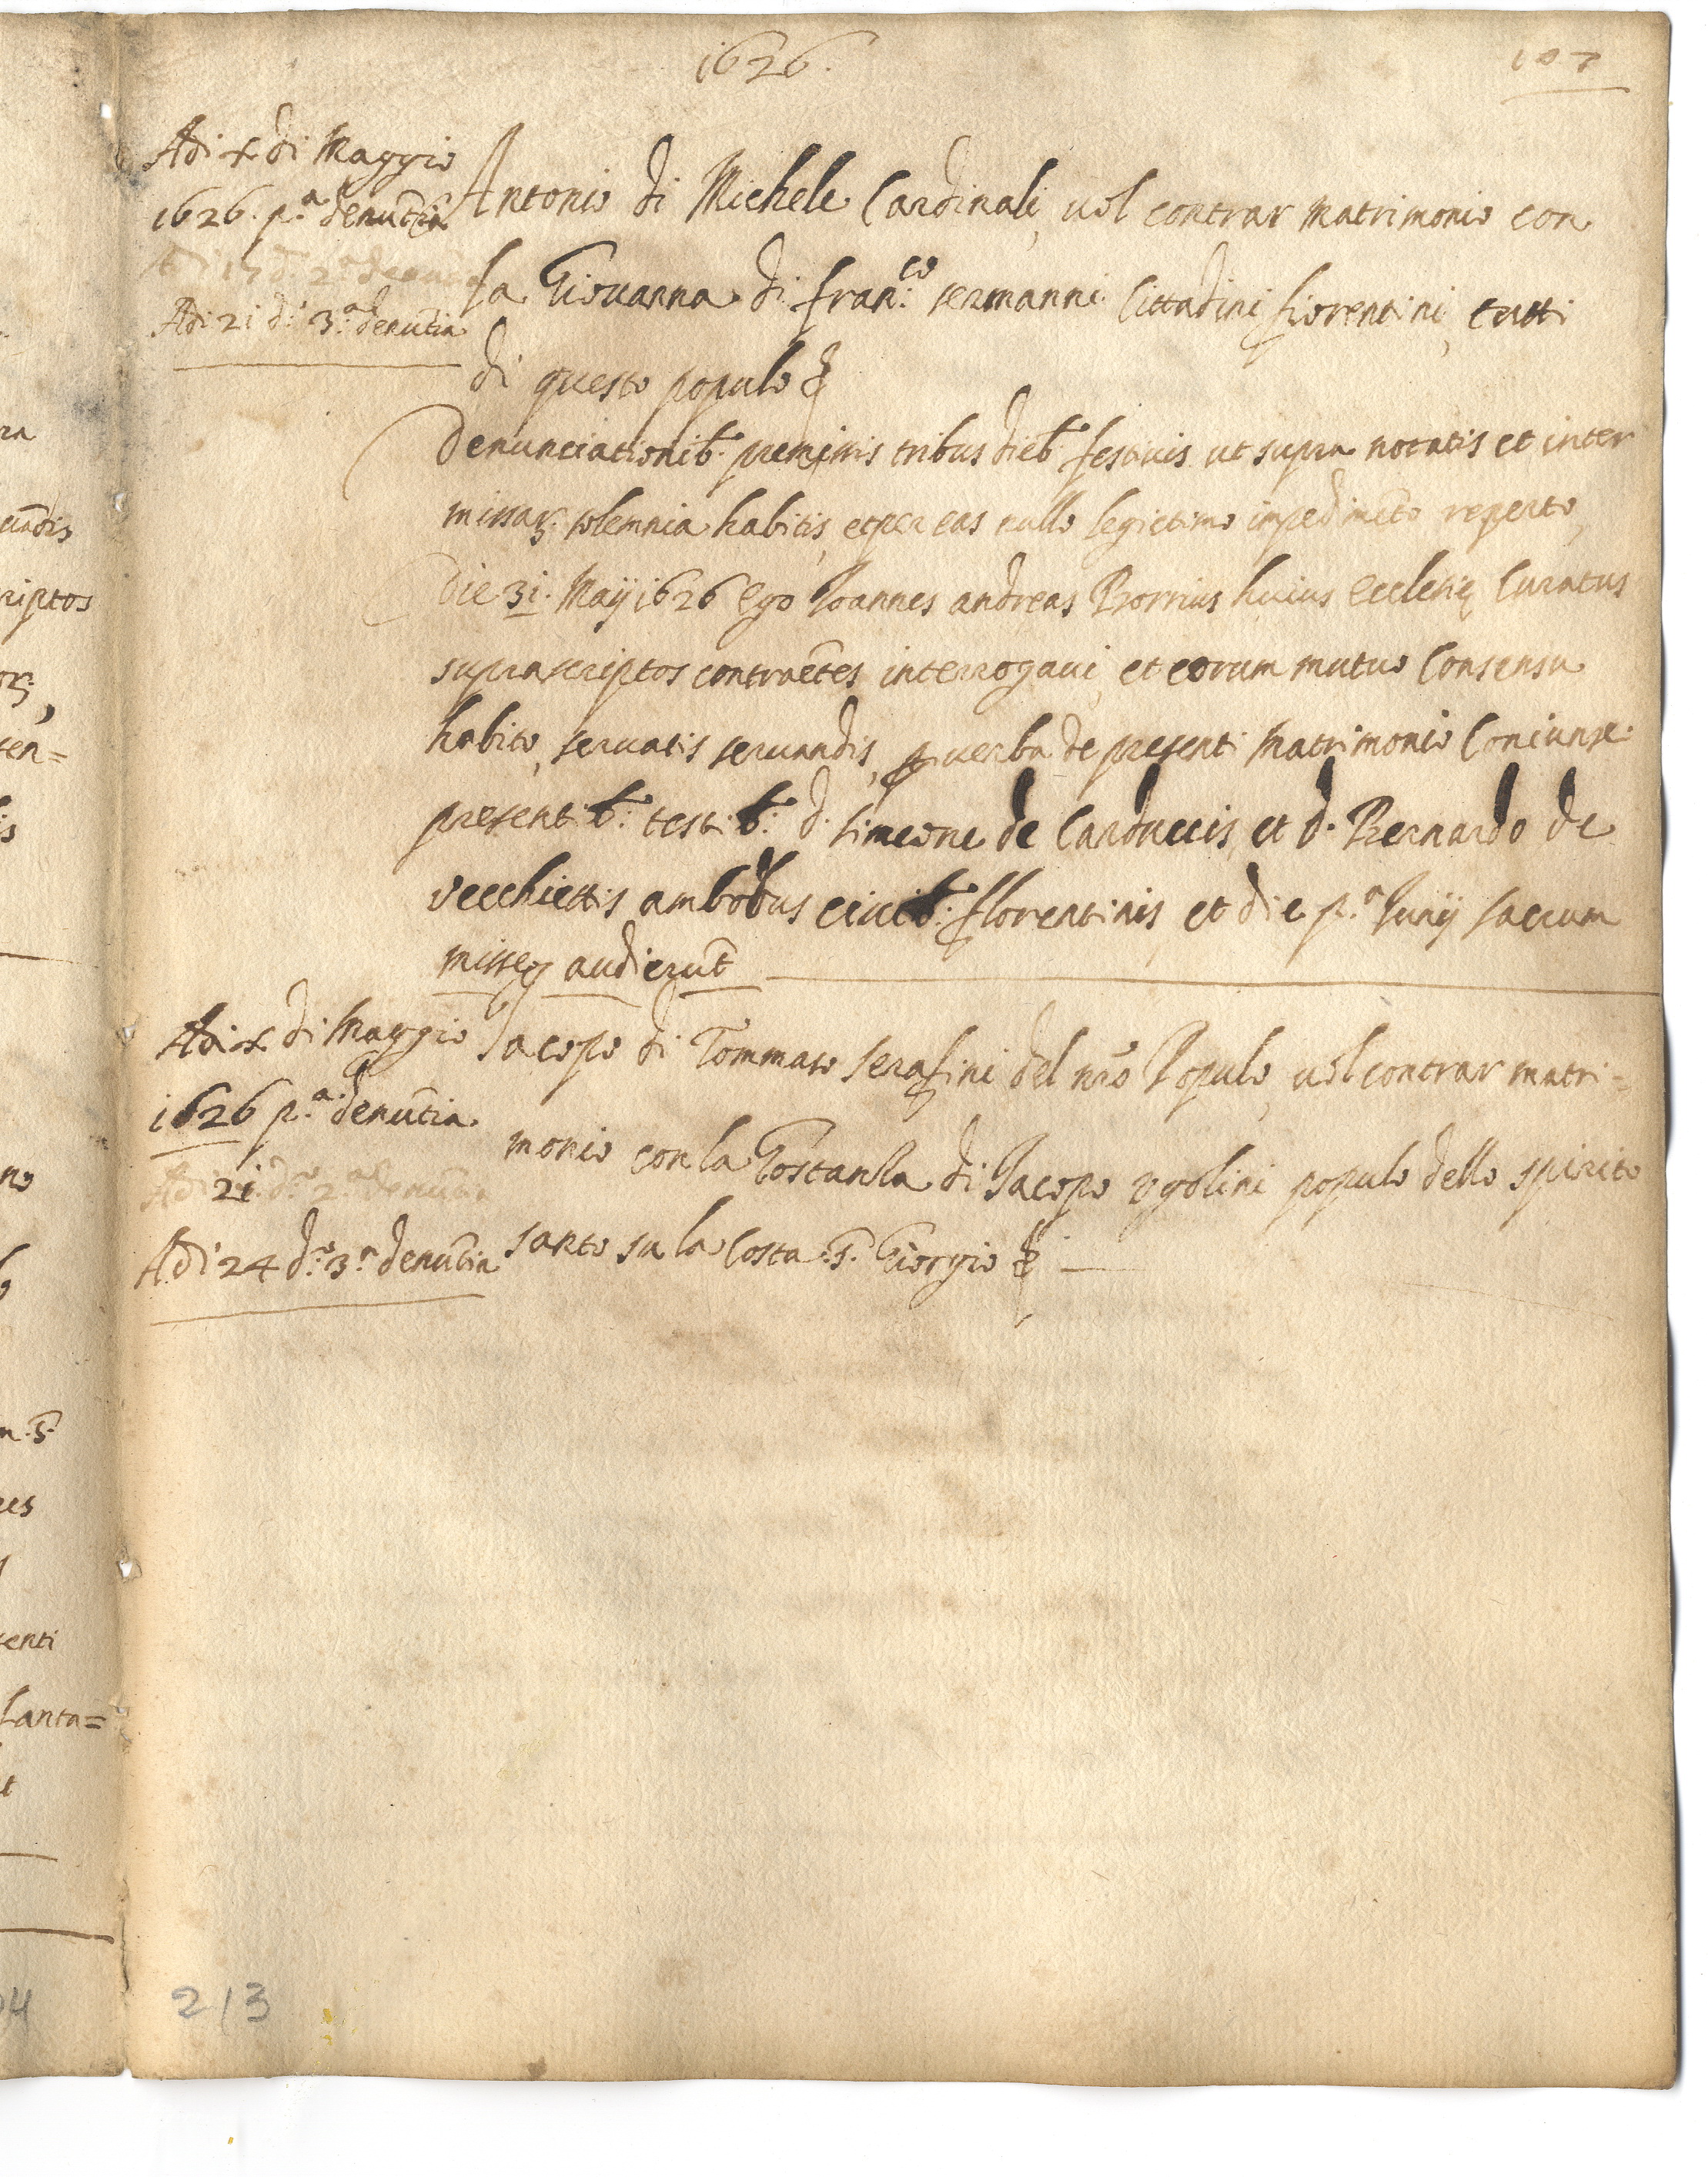 1626.
107
Adi x di Maggio
1626. p.ª denu͠tia
Adi 17 d.º 2.ª denu͠tia
Adi 21 d.º 3.ª denu͠tia
Antonio di Michele Cardinali, uol contrar matrimonio con
la Giouanna di fran.co sermanni Cittadini fiorentini, tutti
di questo populo &
Denunciationib. premissis tribus dieb. festiuis ut supra notatis et inter
missar. solemnia habitis, et per eas nullo legictimo inpedime͠to reperto,
Die 31. Maij 1626 Ego Ioannes andreas Borrius huius Ecclesię Curatus
suprascriptos contrae͠tes interrogaui, et eorum mutuo Consensu
habito, seruatis seruandis, p uerba de presenti Matrimonio Coniunxi.
presentib.: testib.: d. simeone de Carduccis, et d. Bernardo de
Vecchiettis ambobus ciuib.: florentinis, et die p.ª Iunij sacrum
missę audieru͠t
Adi x di Maggio
1626 p.ª denu͠tia
Adi 21. d.º 2.ª denu͠tia
Adi 24 d.º 3.ª denu͠tia
Iacopo di Tommaso serafini del nr͠o Populo, uol contrar matri=
monio con la Gostanza di Iacopo Vgolini populo dello spirito
santo su la Costa .S. Giorgio &
213
ra
ua͠dis
riptos
ten=
is
no
m .S.
res
senti
santa=
t
04